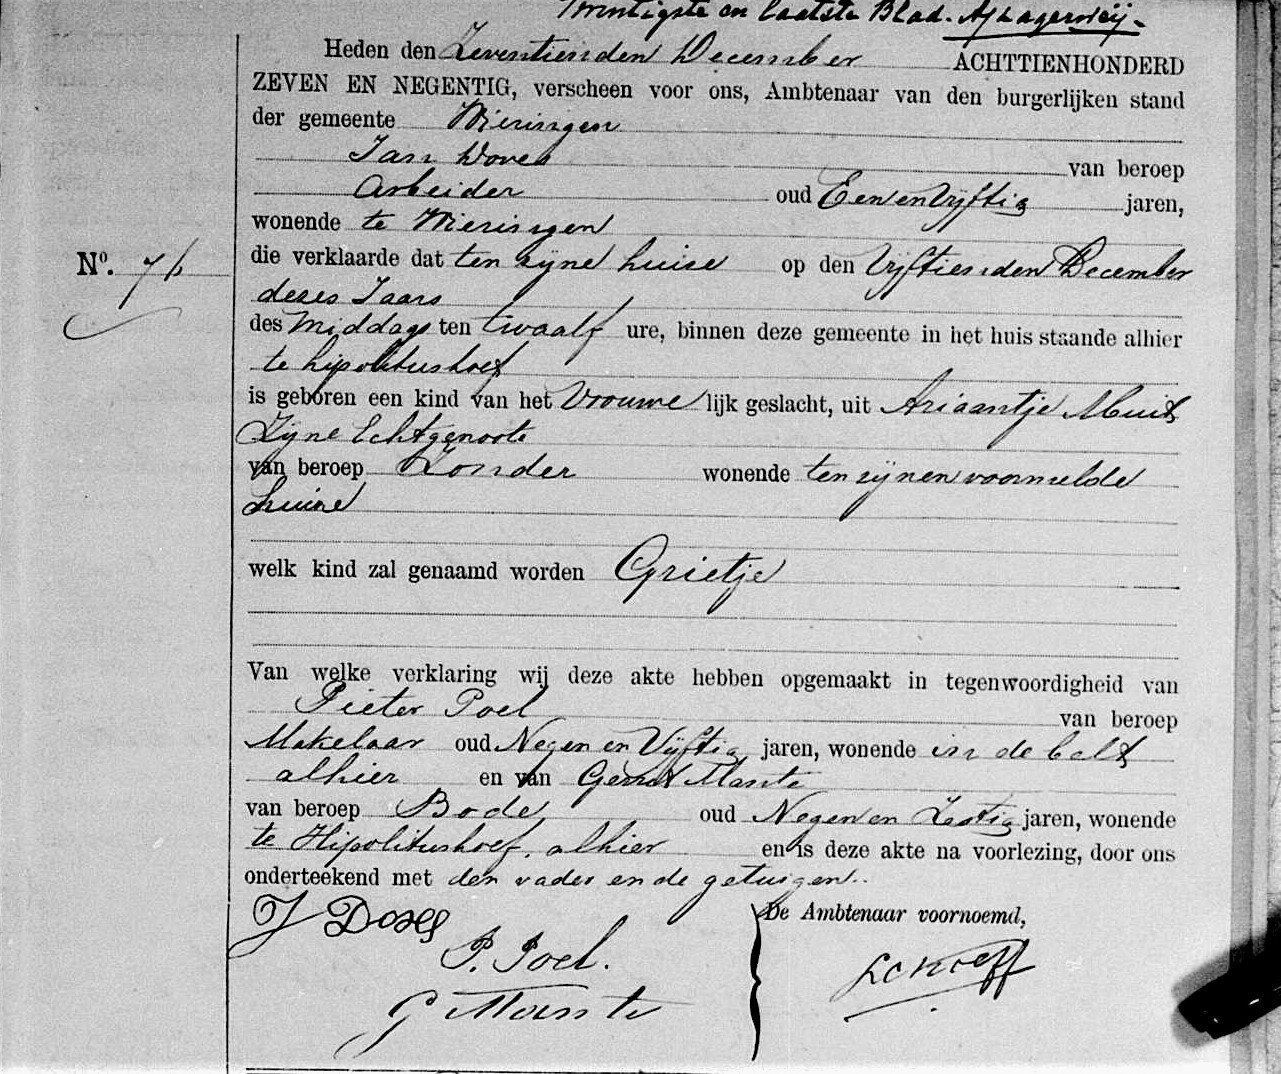 Twintigste en laatste Blad. AJLagerweij.
Heden den Zeventienden December ACHTTIENHONDERD
ZEVEN EN NEGENTIG, verscheen voor ons, Ambtenaar van den burgerlijken stand
der gemeente Wieringen
Jan Doves van beroep
Arbeider oud Een en Vijftig jaren,
wonende te Wieringen
No. 76 die verklaarde dat ten zijne huize op den Vijftienden December
dezes Jaars
des Middags ten twaalf ure, binnen deze gemeente in het huis staande alhier
te hipolitushoef
is geboren een kind van het Vrouwe lijk geslacht, uit Ariaantje Muit
Zijne Echtgenoote
van beroep Zonder wonende ten zijnen voormelde
huize
welk kind zal genaamd worden Grietje
Van welke verklaring wij deze akte hebben opgemaakt in tegenwoordigheid van
Pieter Poel van beroep
Makelaar oud Negen en Vijftig jaren, wonende in de belt
alhier en van Gerrit Mante
van beroep Bode oud Negen en Zestig jaren, wonende
te Hipolitushoef, alhier en is deze akte na voorlezing, door ons
onderteekend met den vader en de getuigen.
J Doves De Ambtenaar voornoemd,
P. Poel.
LCKolff
G Mante